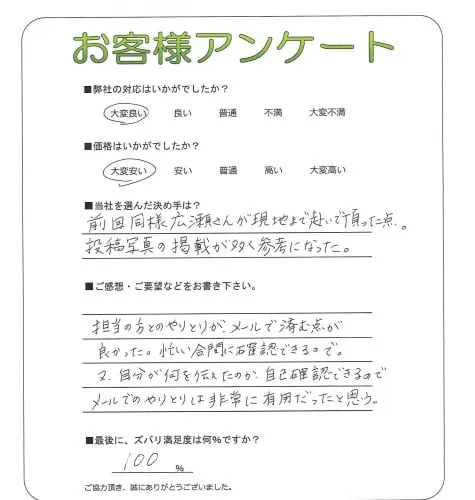 お客様アンケート
■弊社の対応はいかがでしたか？
大変良い 良い 普通 不満 大変不満
■価格はいかがでしたか？
大変安い 安い 普通 高い 大変高い
■当社を選んだ決め手は？
前回同様広瀬さんが現地まで赴いて頂った点。
投稿写真の掲載が多く参考になった。
■ご感想・ご要望などをお書き下さい。
担当の方とのやりとりが、メールで済む点が
良かった。忙しい合間に確認できるので。
又、自分が何を伝えたのか、自己確認できるので
メールでのやりとりは非常に有用だったと思う。
■最後に、ズバリ満足度は何%ですか？
100 %
ご協力頂き、誠にありがとうございました。